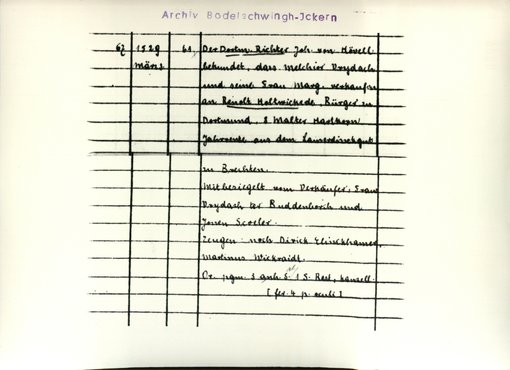 Archiv Bodelschwingh-Ickern
67 1529 61, Der Dortm. Richter Joh. von Hövell
März bekundet, dass Melchior Drydach
und seine Frau Marg. verkaufen
an Reinolt Holtwickede, Bürger zu
Dortmund, 8 Malter Hartkorn
Jahrrente aus dem gut
zu Brechten.
Mitbesiegelt vom Verkäufer, Evert
Drydach ter Buddenborch und
Scoeler.
Zeugen: noch Dirick Clinckhamer,
Martinus Wickraidt.
Or. pgm. 3 1 S. Rest, kansell.
[fer. 4 p. oculi]